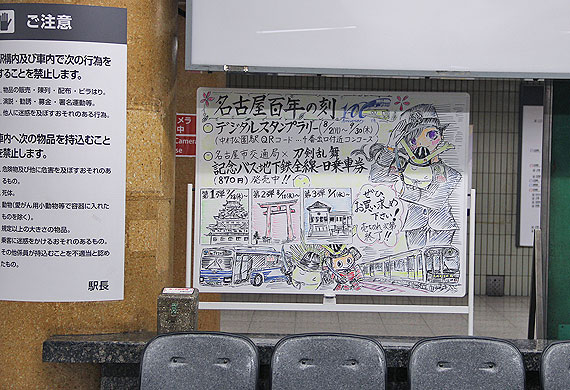 ご注意
駅構内及び車内で次の行為を
することを禁止します。
1.物品の販売・陳列・配布・ビラはり。
2.演説・勧誘・募金・署名運動等。
3.他人に迷惑を及ぼすおそれのある行為。
車内へ次の物品を持込むこと
を禁止します。
危険物及び他に危害を及ぼすおそれのあ
るもの。
死体。
動物(愛がん用小動物等で容器に入れた
ものを除く)。
規定以上の大きさの物品。
乗客に迷惑をかけるおそれのあるもの。
その他係員が持込むことを不適当と認め
たもの。
駅長
カメラ
中
Camera
名古屋百年の刻
デジタルスタンプラリー
(中村公園駅QRコード
名古屋市交通局×刀剣乱舞
記念バス地下鉄全線一日乗車券
(870円)発売中!!
第1弾
第2弾
第3弾
ぜひ
お買い求め
下さい!